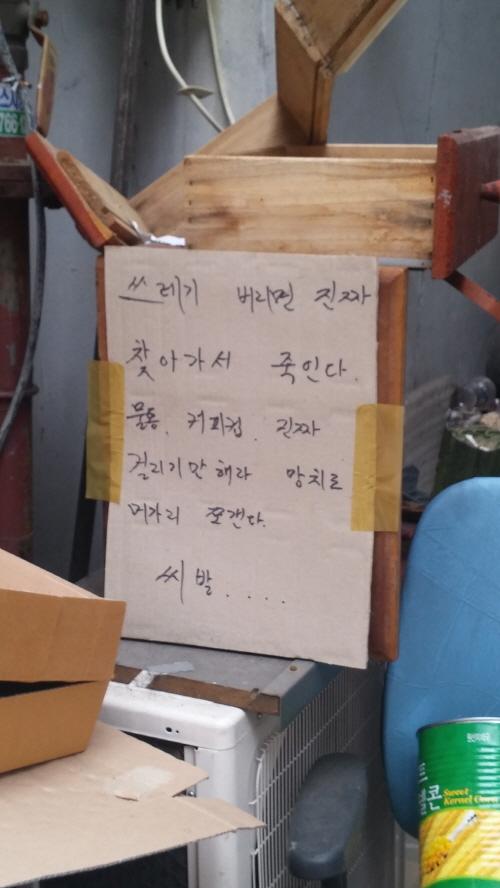 쓰레기 버리면 진짜
찾아가서 죽인다.
물통, 커피컵, 진짜
걸리기만 해라 망치로
머가리 쪼갠다.
씨발.....
766-
콘
Sweet
Kernel Corn